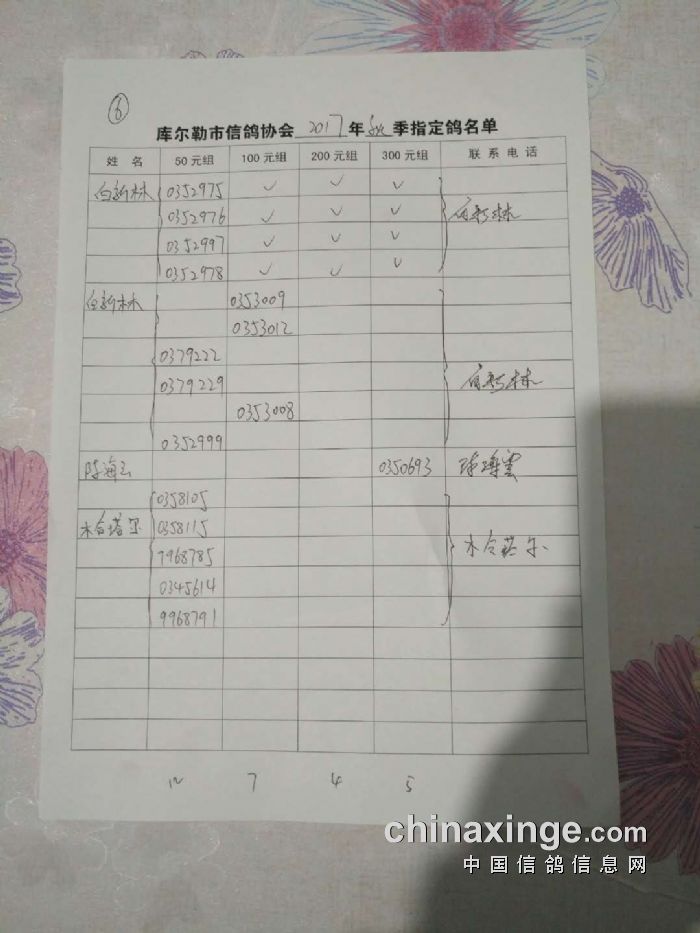 6
库尔勒市信鸽协会 2017 年 秋 季指定鸽名单
姓 名 50元组 100元组 200元组 300元组 联系电话
白新林 0352975 ✓ ✓ ✓
0352976 ✓ ✓ ✓ 白新林
0352997 ✓ ✓ ✓
0352978 ✓ ✓ ✓
白新林 0353009
0353012
0379222
0379229 白新林
0353008
0352999
陈海云 0350693 陈海云
0358105
木合塔尔 0358115
7968785 木合塔尔
0345614
9968791
12 7 4 5
chinaxinge.com
中国信鸽信息网